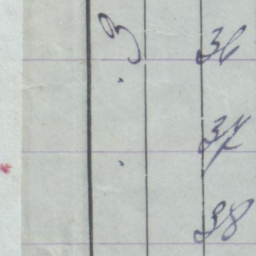 3 36
. 37
. 38